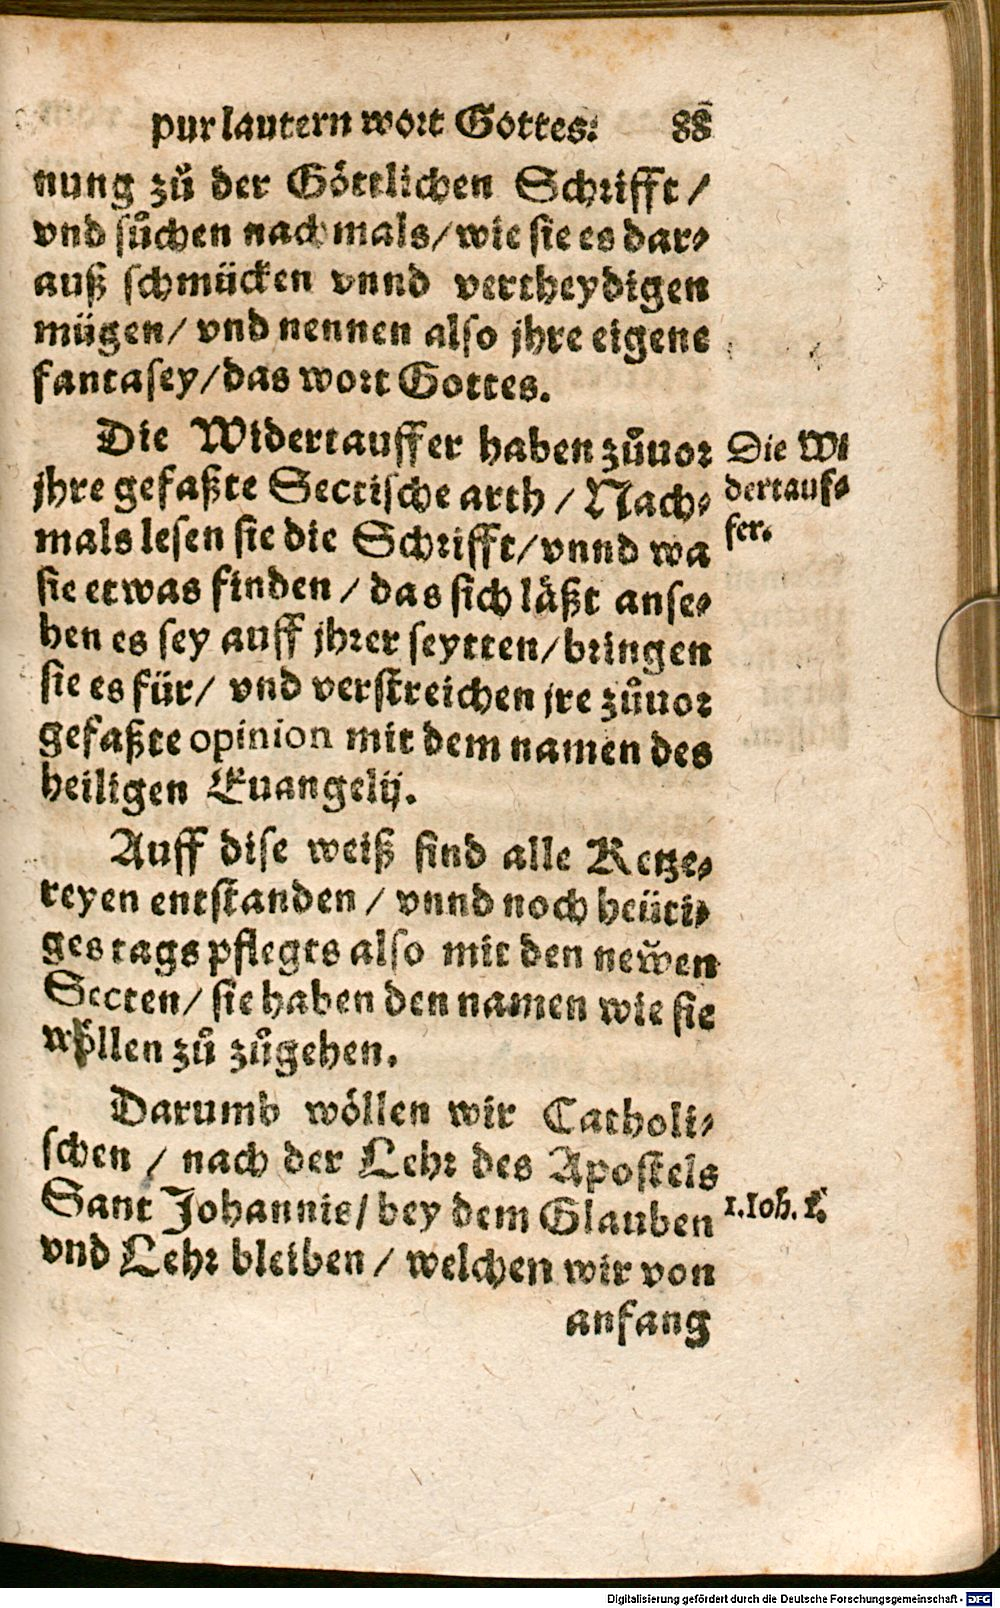 pur lautern wort Gottes. 88
nung zů der Göttlichen Schrifft /
vnd sůchen nachmals / wie sie es dar-
auß schmücken vnnd vertheydigen
mügen / vnd nennen also jhre eigene
fantasey / das wort Gottes.
Die Widertauffer haben zůuor
jhre gefaßte Sectische arth / Nach-
mals lesen sie die Schrifft / vnnd wa
sie etwas finden / das sich läßt anse-
hen es sey auff jhrer seytten / bringen
sie es für / vnd verstreichen jre zůuor
gefaßte opinion mit dem namen des
heiligen Euangelij.
Die Wi
dertauf-
fer.
Auff dise weiß sind alle Ketze-
reyen entstanden / vnnd noch heüti-
ges tags pflegts also mit den newen
Secten / sie haben den namen wie sie
wöllen zů zůgehen.
Darumb wöllen wir Catholi-
schen / nach der Lehr des Apostels
Sant Johannis / bey dem Glauben
vnd Lehr bleiben / welchen wir von
1. Ioh. 1.
anfang
Digitalisierung gefördert durch die Deutsche Forschungsgemeinschaft - DFG